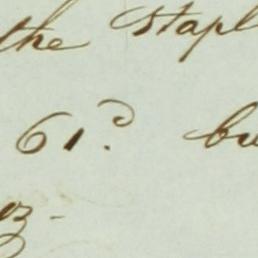 the Stapl
61.d bu
oz-